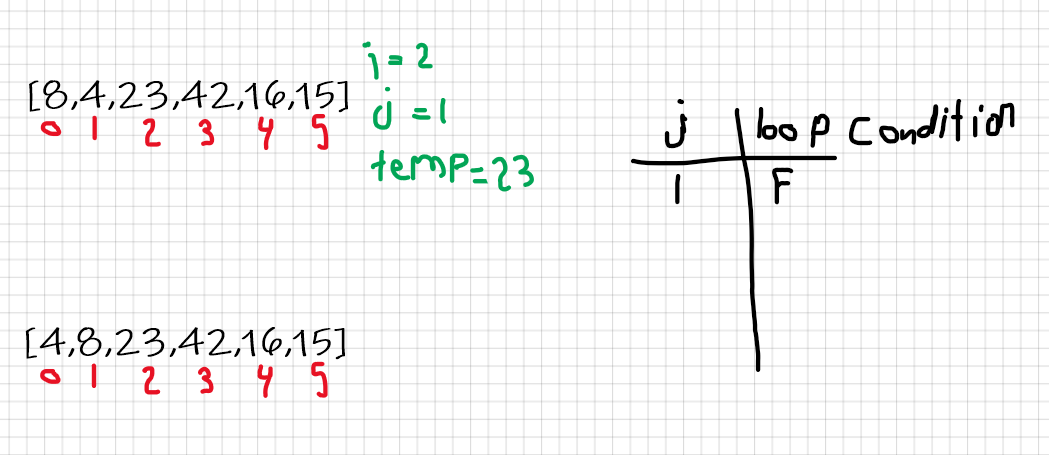 [8,4,23,42,16,15]
0 1 2 3 4 5
i = 2
j = 1
temp = 23
j loop condition
1 F
[4,8,23,42,16,15]
0 1 2 3 4 5